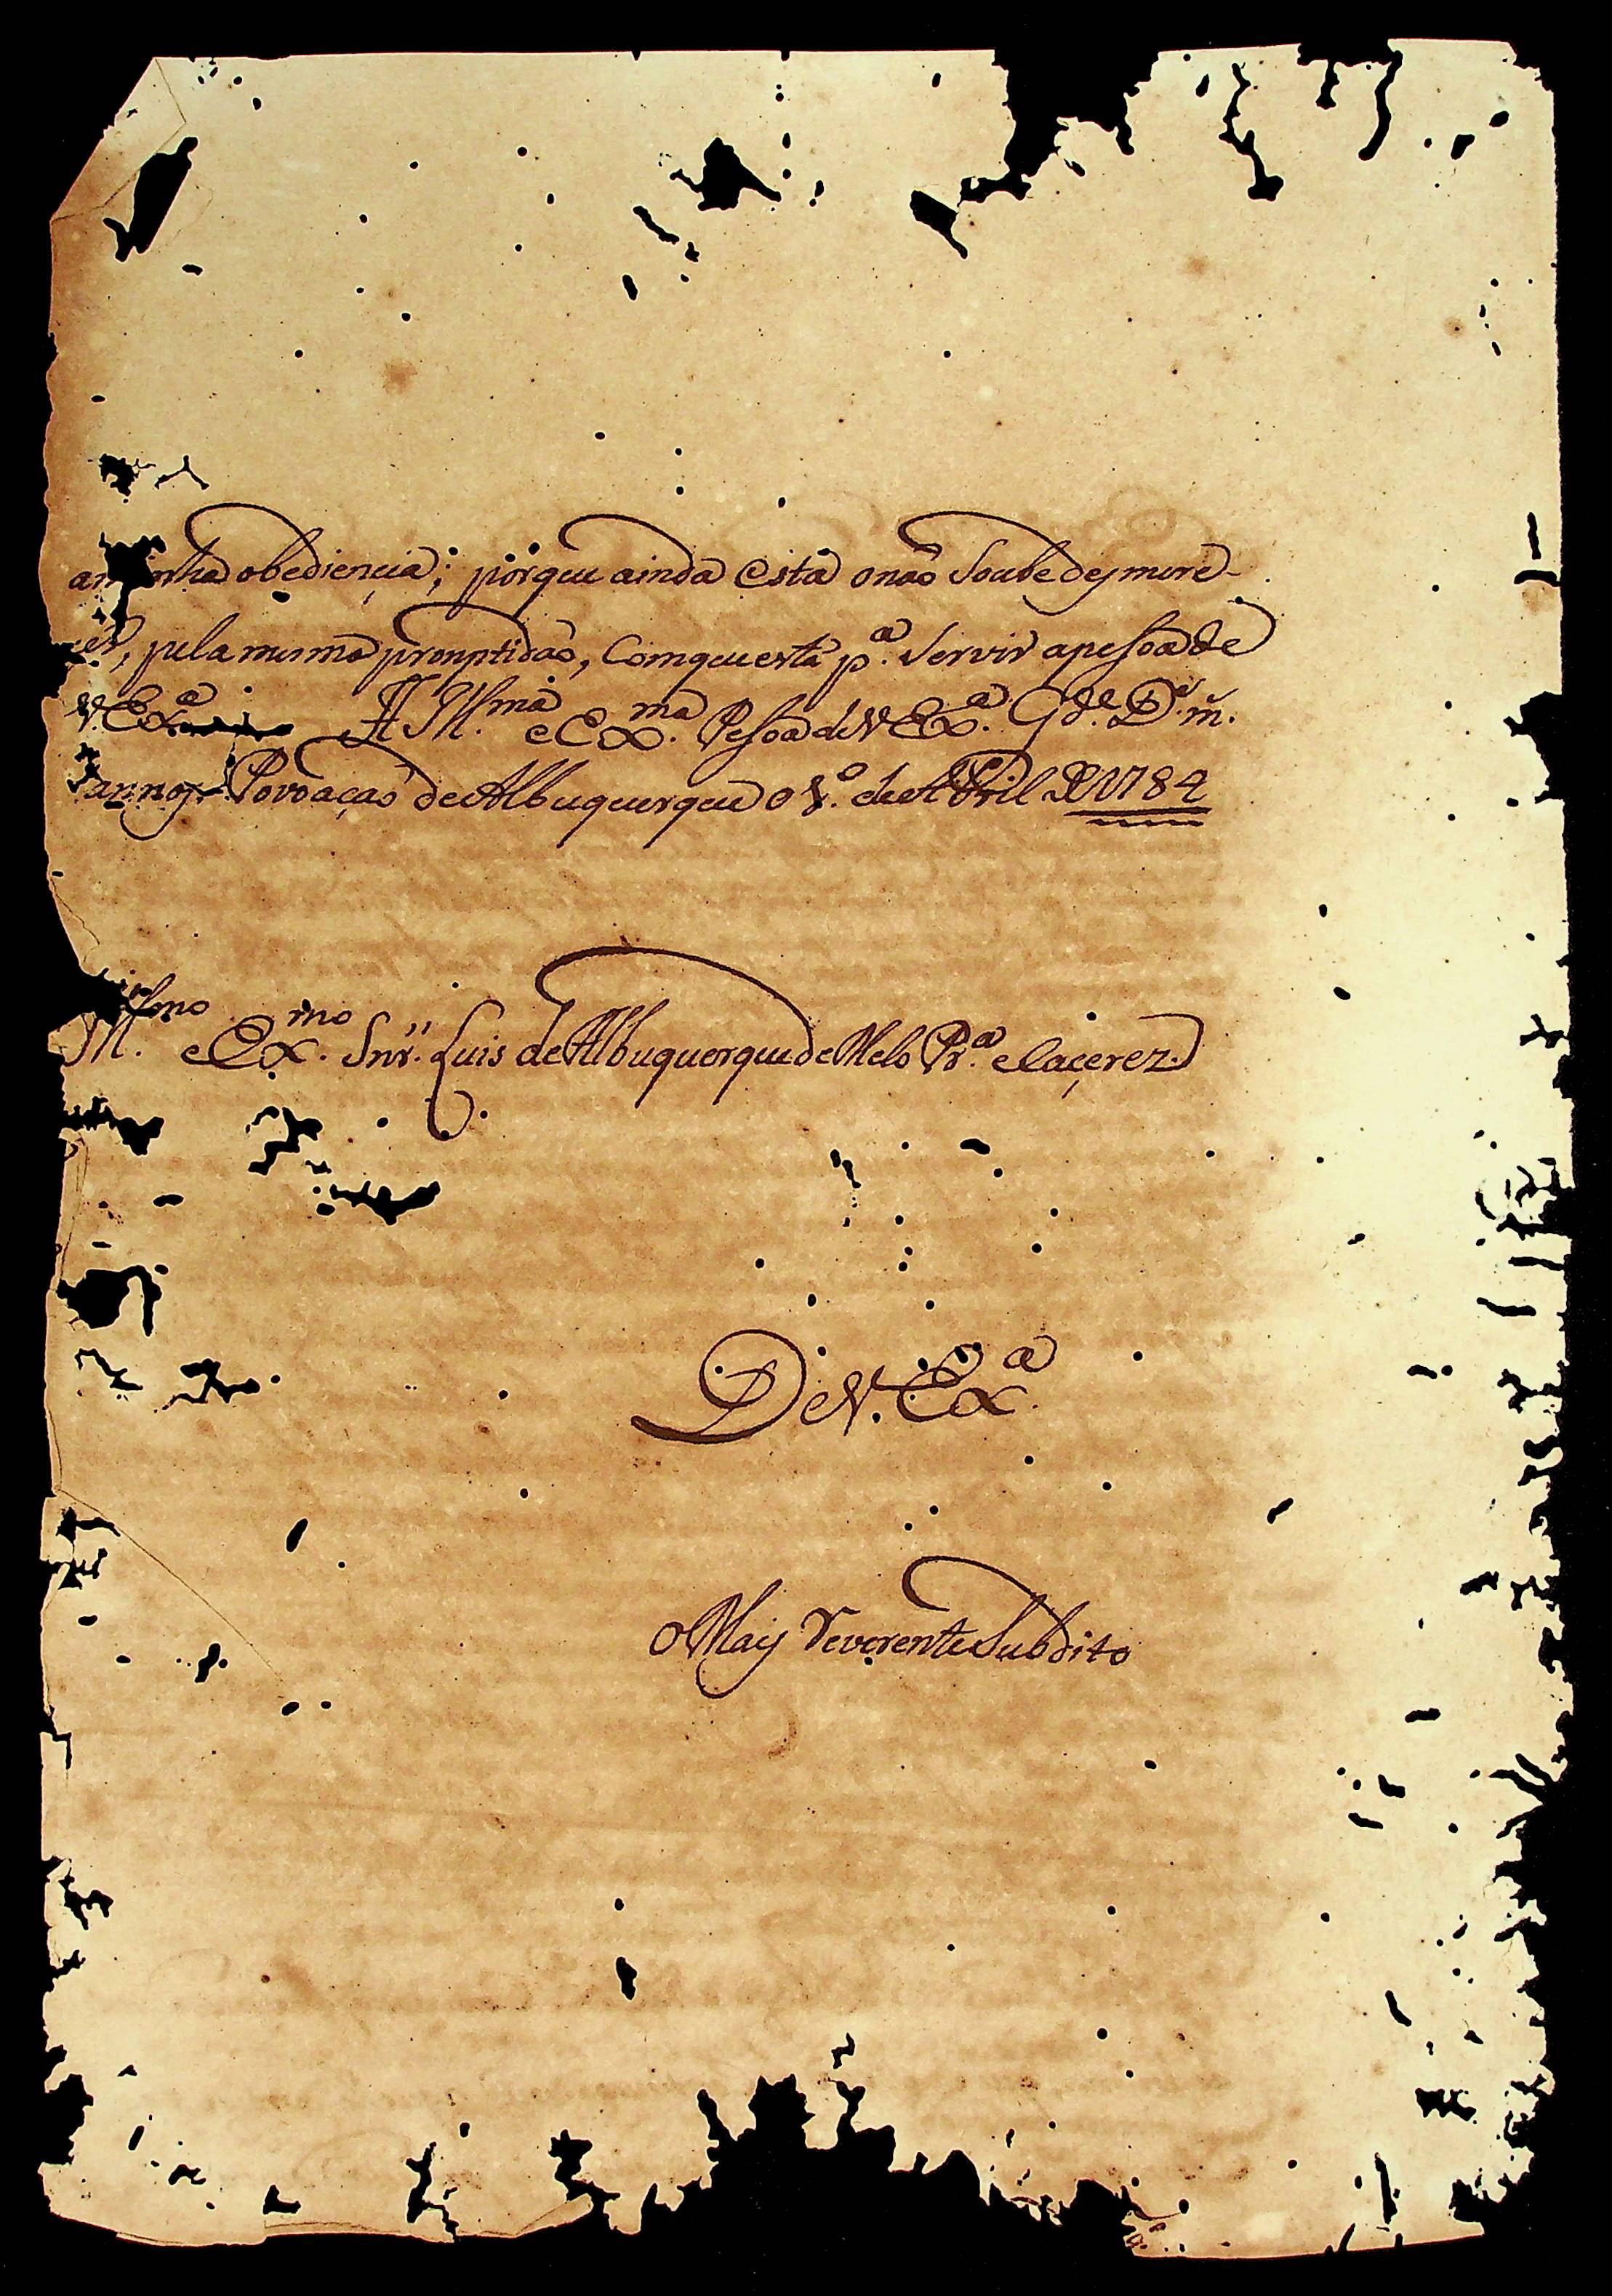 a minha obediençia; porque ainda esta o naõ Soube desmere-
cer, pela mesma promptidaõ, Comque está p.ª Servir apesoa de
V. Ex.ª A Ill.ma e Ex.ma Pesoa de V Ex.ª G.de D.s m.
annos. Povoaçaõ de Albuquerque de Abril D 1784
Ill.mo e Ex.mo Snr.' Luis de Albuquerque de Melo Pr.ª e Caçerez.
De V. Ex.ª
O Mais reverente Subdito